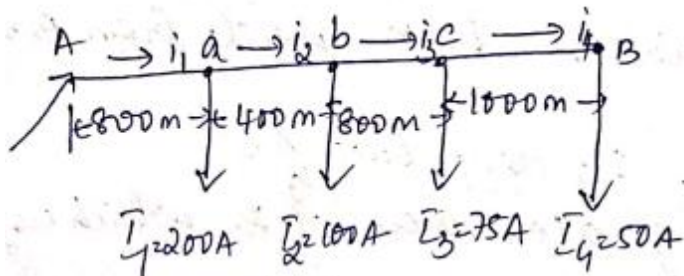 A → i₁ a → i₂ b → i₃ c → i₄ B
800m 400m 800m 1000m
I₁=200A I₂=100A I₃=75A I₄=50A